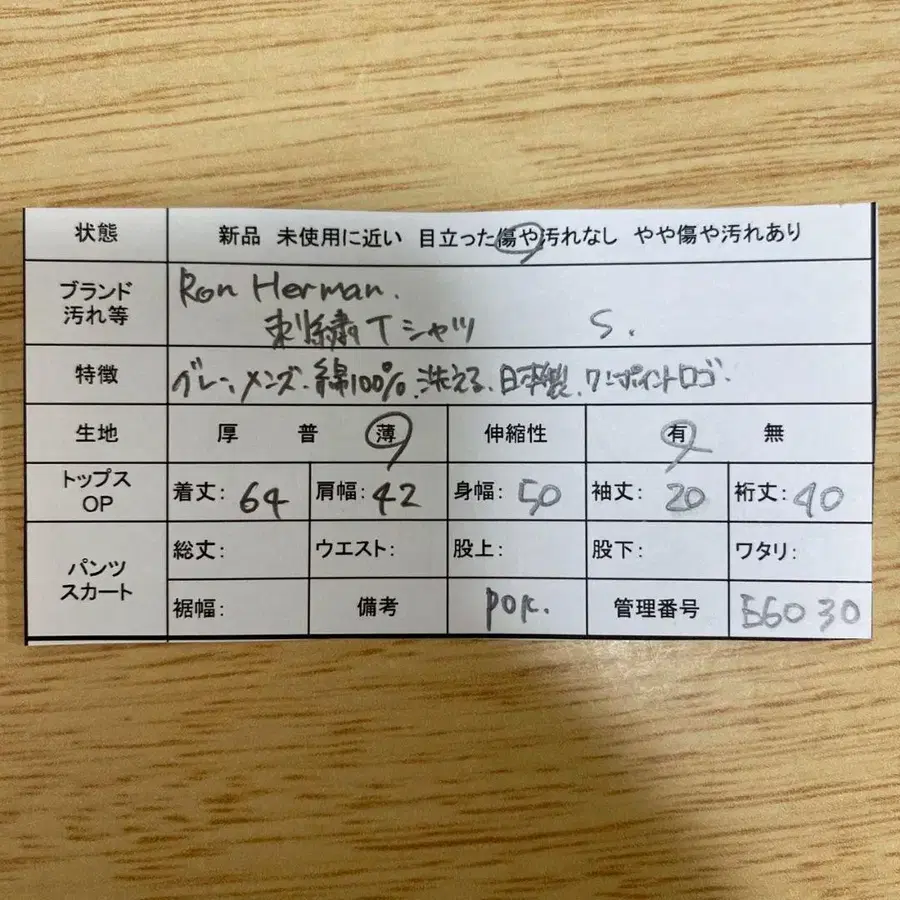 状態 新品 未使用に近い 目立った傷や汚れなし やや傷や汚れあり
ブランド Ron Herman.
汚れ等 刺繍Tシャツ S.
特徴 グレー、メンズ、綿100%、洗える、日本製、ワンポイントロゴ.
生地 厚 普 薄 伸縮性 有 無
トップス OP 着丈: 64 肩幅: 42 身幅: 50 袖丈: 20 裄丈: 40
パンツ スカート 総丈: ウエスト: 股上: 股下: ワタリ:
裾幅: 備考 pok. 管理番号 56030